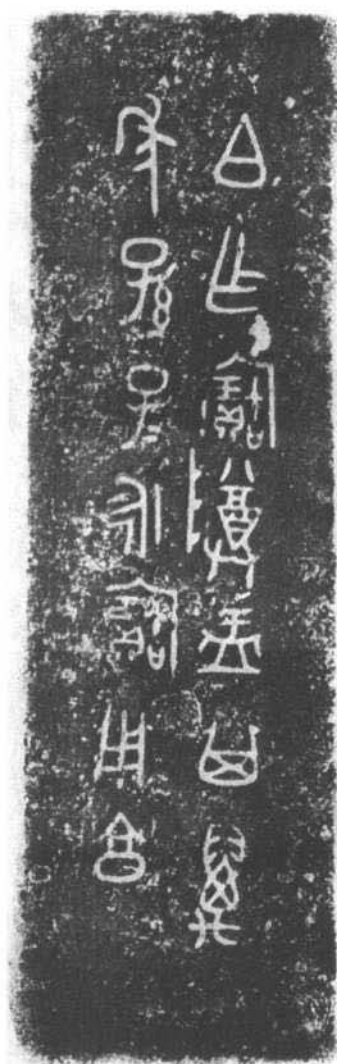 白乍寶尊盂其萬
年孫=子=永寶用享